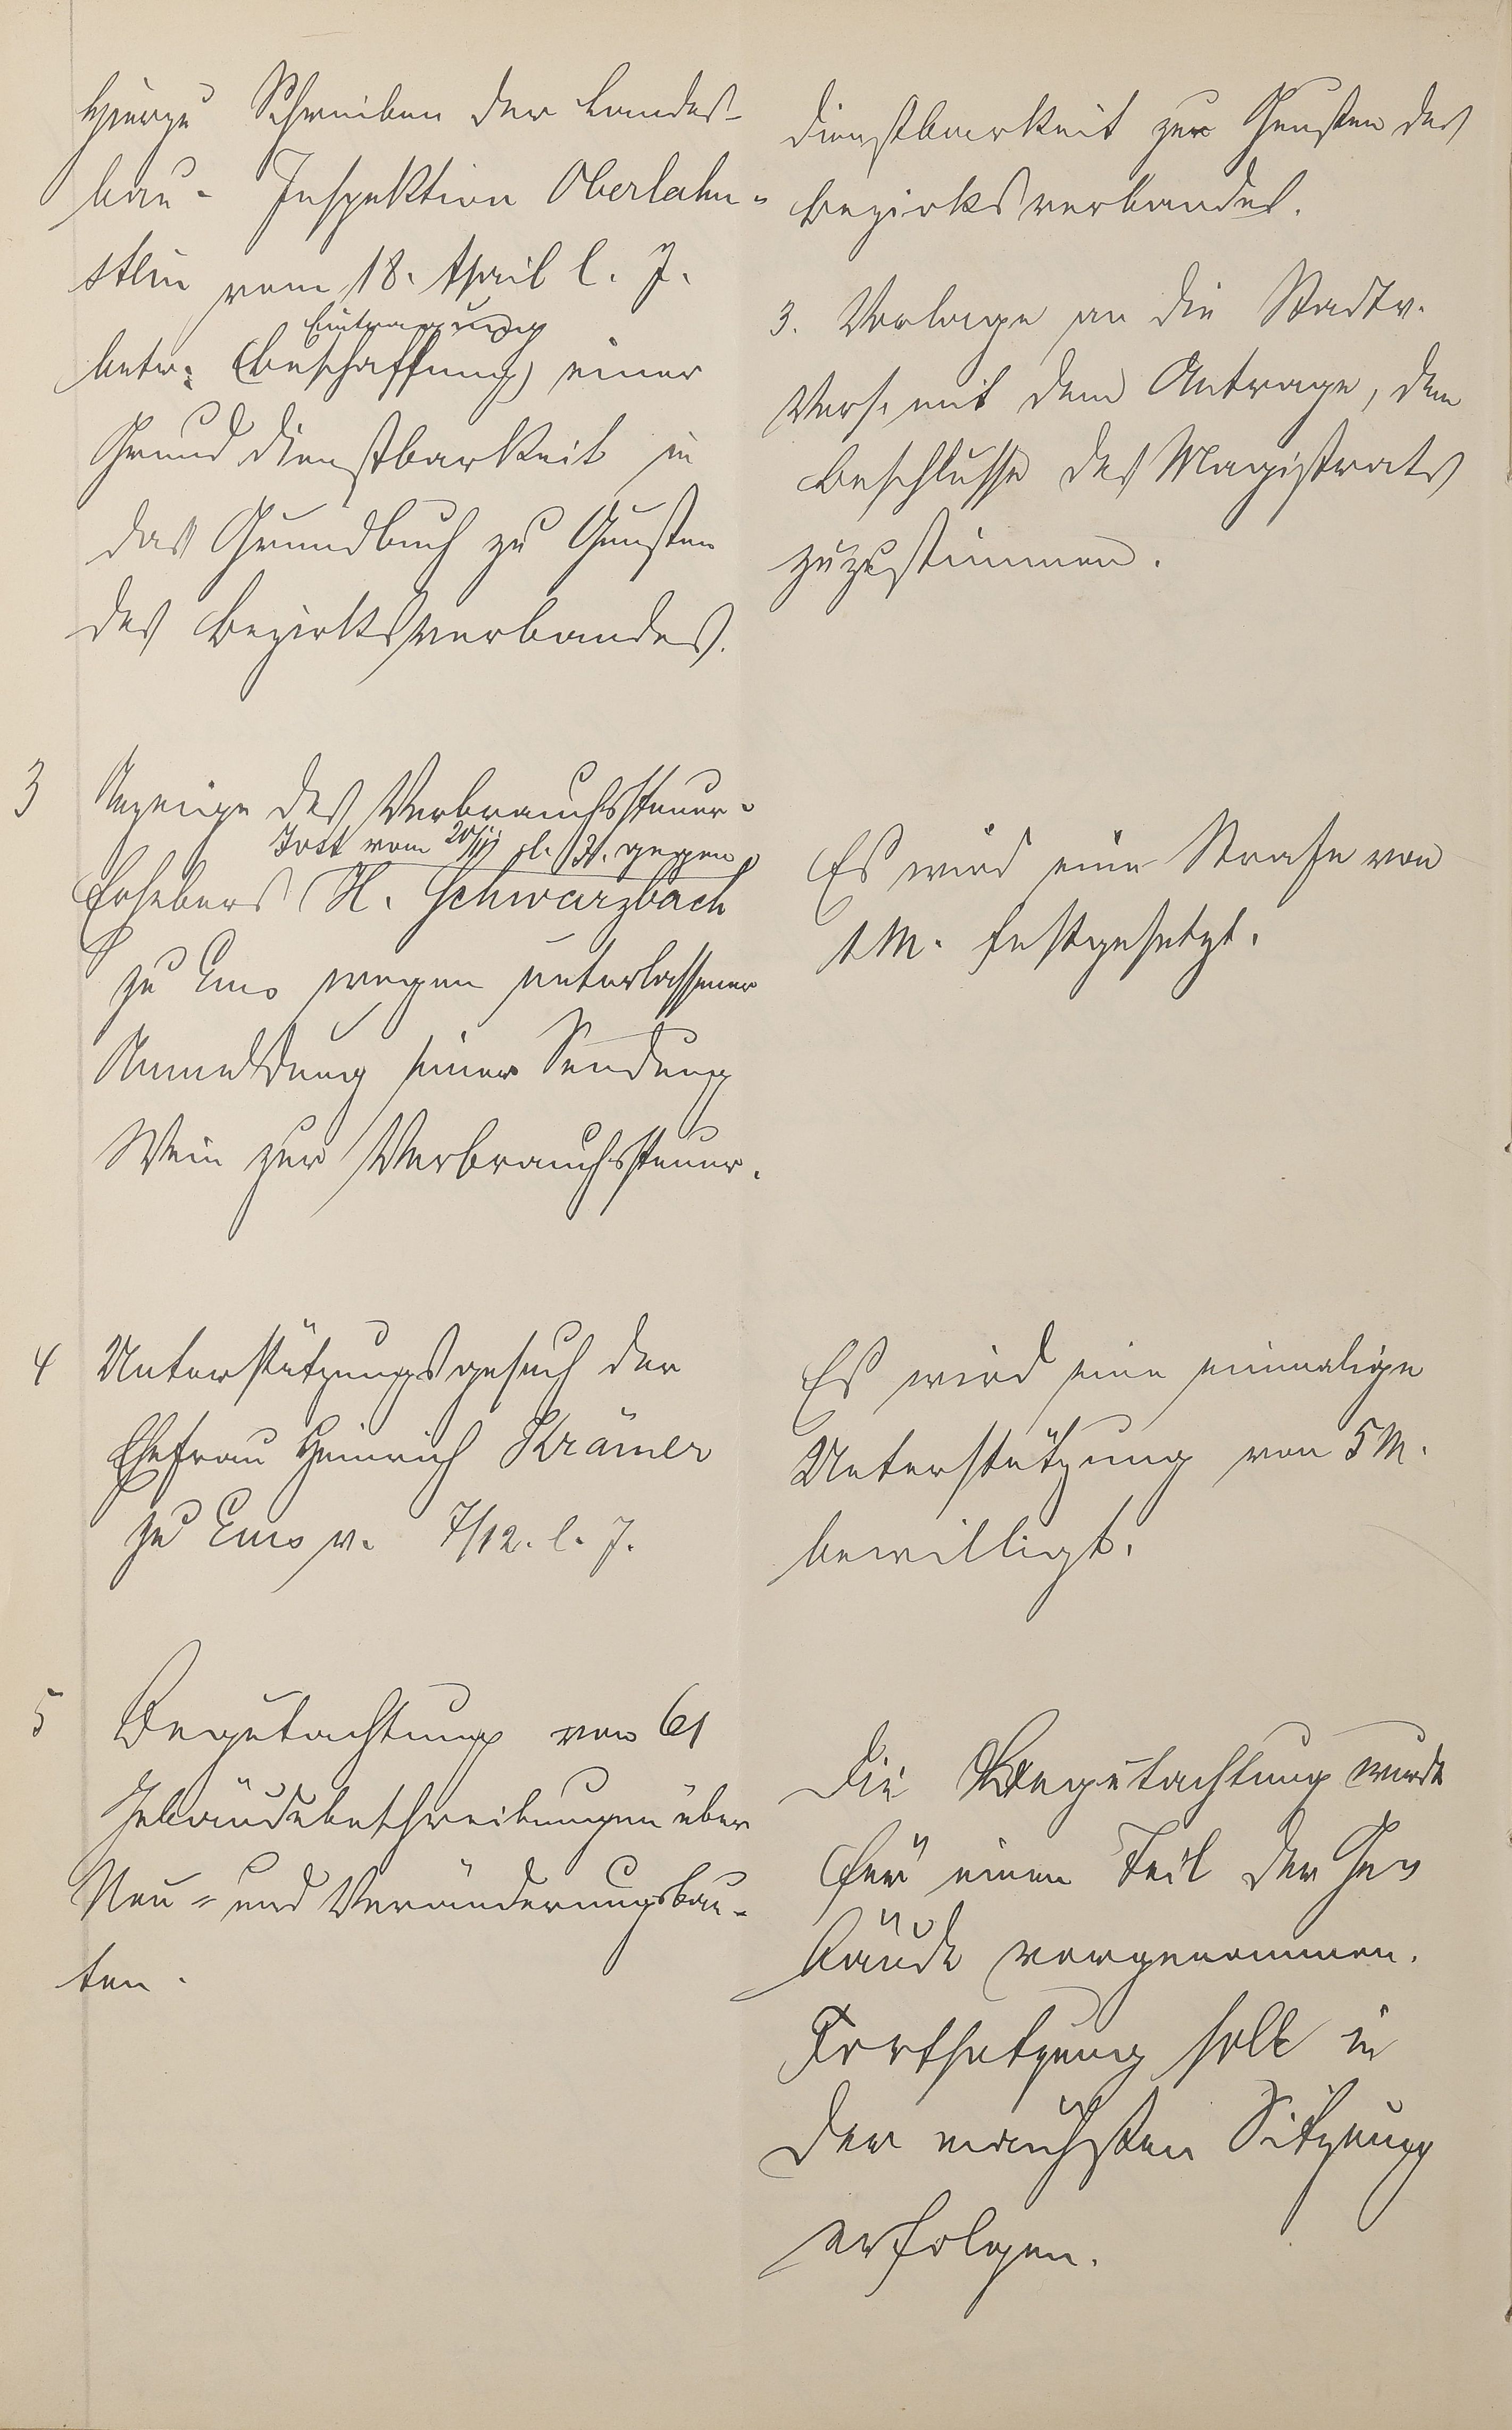 Hierzu Schreiben der Landes-
bau- Inspektion Oberlahn-
stein vom 18. April l. J.
Eintragung
betr: (Beschaffung) einer
Grunddienstbarkeit in
das Grundbuch zu Gunsten
des Bezirksverbandes.
3 Anzeige des Verbrauchssteuer-
Jost vom 20/11 l. Js. gegen
Erhebers H. Schwarzbach
zu Ems wegen unterlassener
Anmeldung seiner Sendung
Wein zur Verbrauchssteuer.
4 Unterstützungsgesuch der
Ehefrau Heinrich Krämer
zu Ems v. 7/12. l. J.
5 Begutachtung von 61
Gebäudebeschreibungen über
Neu- und Veränderungsbau-
ten.
dienstbarkeit zu Gunsten des
Bezirksverbandes.
3. Vorlage an die Stadtv.
Vers. mit dem Antrage, dem
Beschlusse des Magistrats
zuzustimmen.
Es wird eine Strafe von
1 M. festgesetzt.
Es wird eine einmalige
Unterstützung von 5 M.
bewilligt.
Die Begutachtung wurde
für einen Teil der Ge-
bäude vorgenommen.
Fortsetzung soll in
der nächsten Sitzung
erfolgen.